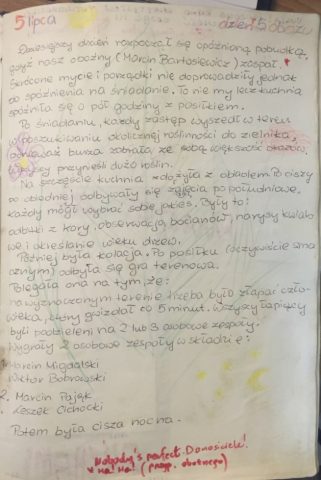 5 lipca
dzień 5 obozu
Dzisiejszy dzień rozpoczął się opóźnioną pobudką,
gdyż nasz oboźny (Marcin Bartosiewicz) zaspał. *
Skrócone mycie i porządki nie doprowadziły jednak
do spóźnienia na śniadanie. To nie my lecz kuchnia
spóźniła się o pół godziny z posiłkiem.
Po śniadaniu, każdy zastęp wyszedł w teren
w poszukiwaniu okolicznej roślinności do zielnika,
ponieważ burza zabrała ze sobą większość okazów,
przynieśli dużo roślin.
Na szczęście kuchnia zdążyła z obiadem. Po ciszy
po obiedniej odbywały się zajęcia popołudniowe.
Każdy mógł wybrać sobie jakieś. Były to:
odbitki z kory, obserwacja bocianów, narysy
we i określanie wieku drzew.
Później była kolacja. Po posiłku (oczywiście sma
cznym) odbyła się gra terenowa.
Polegała ona na tym, że:
na wyznaczonym terenie trzeba było złapać czło-
wieka, który gwizdał co 5 minut. Wszyscy łapiący
byli podzieleni na 2 lub 3 osobowe zespoły.
Wygrały 2 osobowe zespoły w składzie:
1. Marcin Migdalski
Wiktor Bobrowski
2. Marcin Pająk
Leszek Cichocki
Potem była cisza nocna.
Nobody's perfect. Donosiciele!
* ha! ha! (przyp. oboźnego)